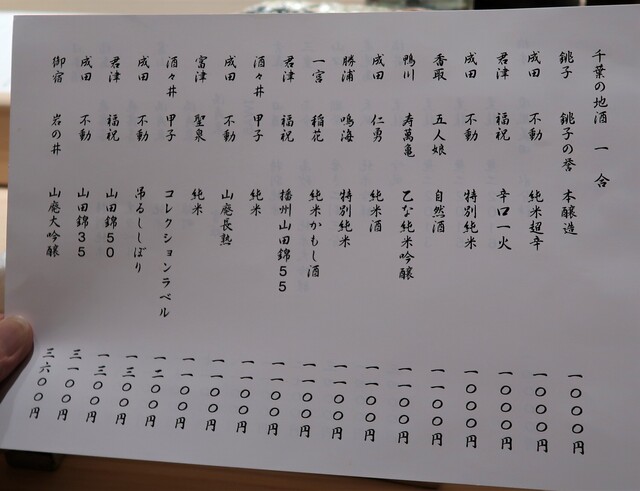 千葉の地酒 一合
銚子 銚子の誉 本醸造 一〇〇〇円
成田 不動 純米超辛 一〇〇〇円
君津 福祝 辛口一火 一〇〇〇円
成田 不動 特別純米 一〇〇〇円
香取 五人娘 自然酒 一一〇〇円
鴨川 寿萬亀 乙な純米吟醸 一一〇〇円
成田 仁勇 純米酒 一一〇〇円
勝浦 鳴海 特別純米 一一〇〇円
一宮 稲花 純米かもし酒 一一〇〇円
君津 福祝 播州山田錦55 一一〇〇円
酒々井 甲子 純米 一一〇〇円
成田 不動 山廃長熟 一一〇〇円
富津 聖泉 純米 一一〇〇円
酒々井 甲子 コレクションラベル 一二〇〇円
成田 不動 吊るししぼり 一三〇〇円
君津 福祝 山田錦50 一三〇〇円
成田 不動 山田錦35 三一〇〇円
御宿 岩の井 山廃大吟醸 三六〇〇円